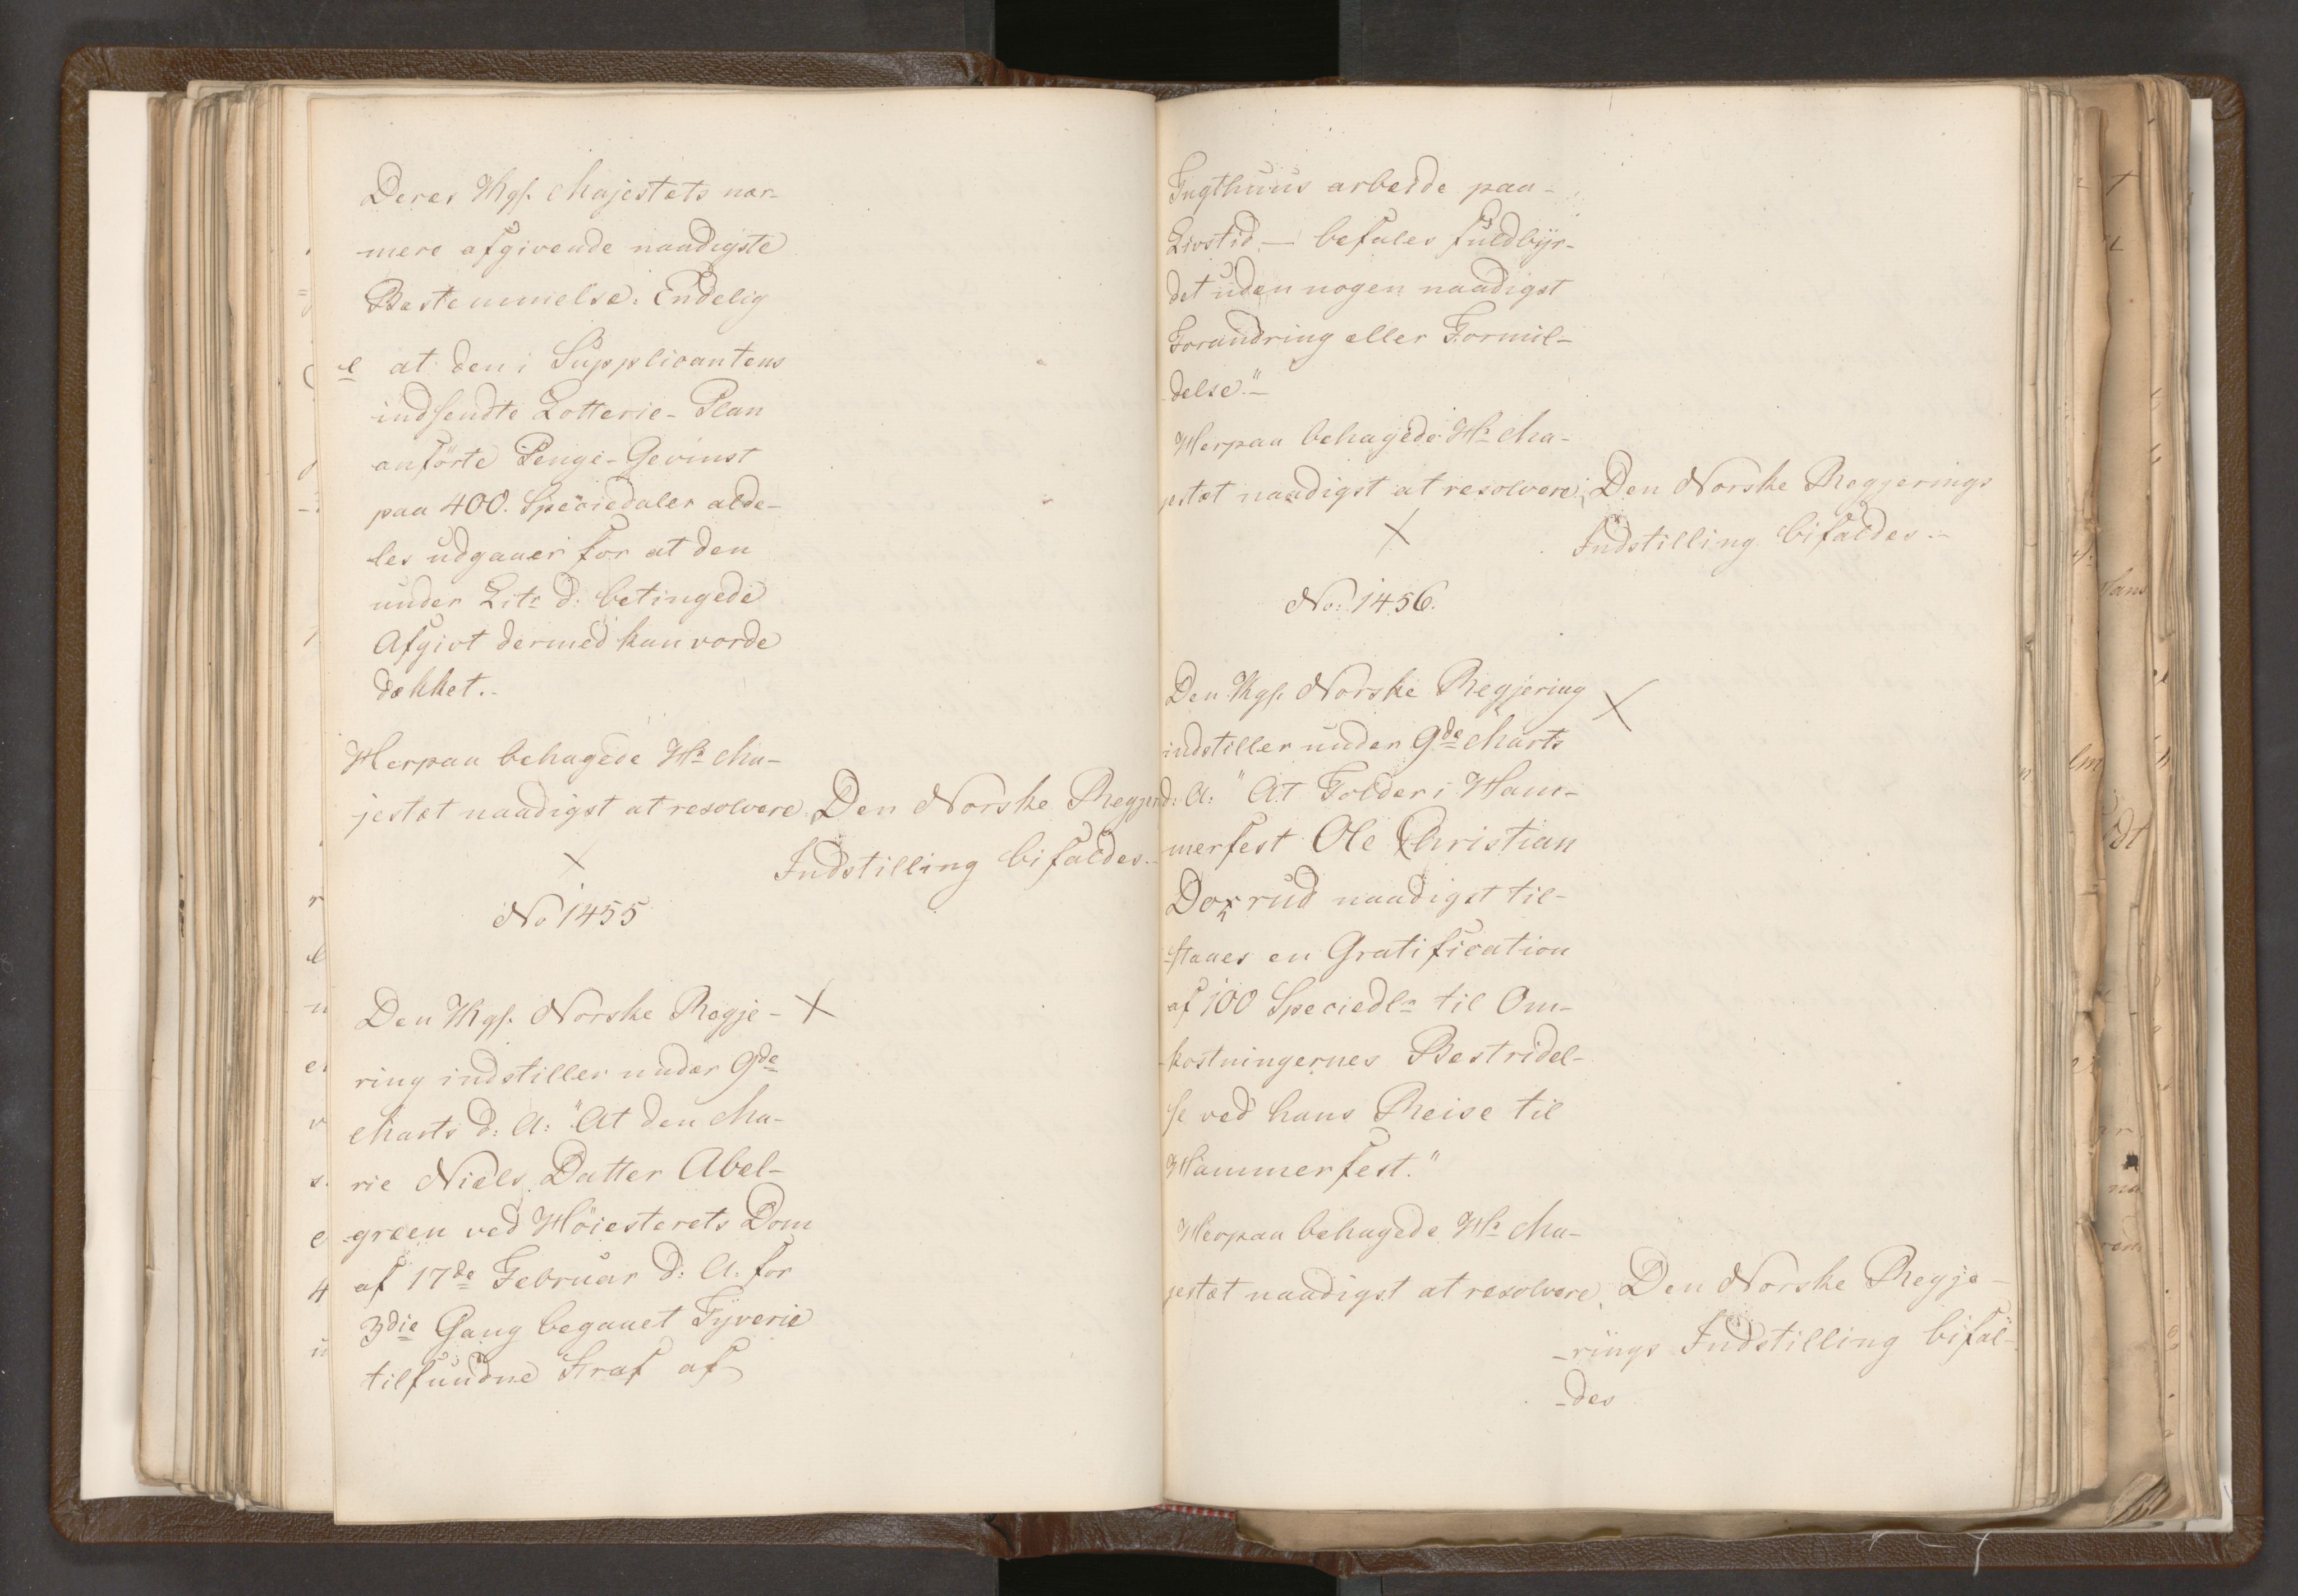 Deres Kgl. Majestæts nær-
mere afgivende naadigste
Bestemmelse. Endelig
e at den i Supplicantens
indsendte Lotterie-Plan
anførte Penge-Gevinst
paa 400. Speciedaler alde-
les udgaaer for at den
under Litr d. betingede
Afgivt dermed kan vorde
dækket.-
Herpaa behagede Hs Ma-
jestæt naadigst at resolvere. Den Norske Regjer
Indstilling bifaldes.-
No 1455
Den Kgl. Norske Regje-
ring indstiller under 9de
Marts d: A: "At den Ma-
rie Niels Datter Abel-
green ved Höiesterets Dom
af 17de Februar d: A. for
3die Gang begaaet Tyverie
tilfundne Straf af
Tugthuus arbeide paa
Livstid - befales fuldbyr-
det uden nogen naadigst
Forandring eller Formil-
delse."-
Herpaa behagede Hs Ma-
jestæt naadigst at resolvere: Den Norske Regjerings
Indstilling bifaldes.-
No: 1456.
Den Kgl. Norske Regjering
indstiller under 9de Marts
d: A: "At Tolder i Ham-
merfest Ole Christian
rud naadigst til-
staaes en Gratification
af 100 Speciedlr til Om-
kostningernes Bestridel-
se ved hans Reise til
Hammerfest."
Herpaa behagede Hs Ma-
jestæt naadigst at resolvere Den Norske Regje-
-rings Indstilling bifal-
-des